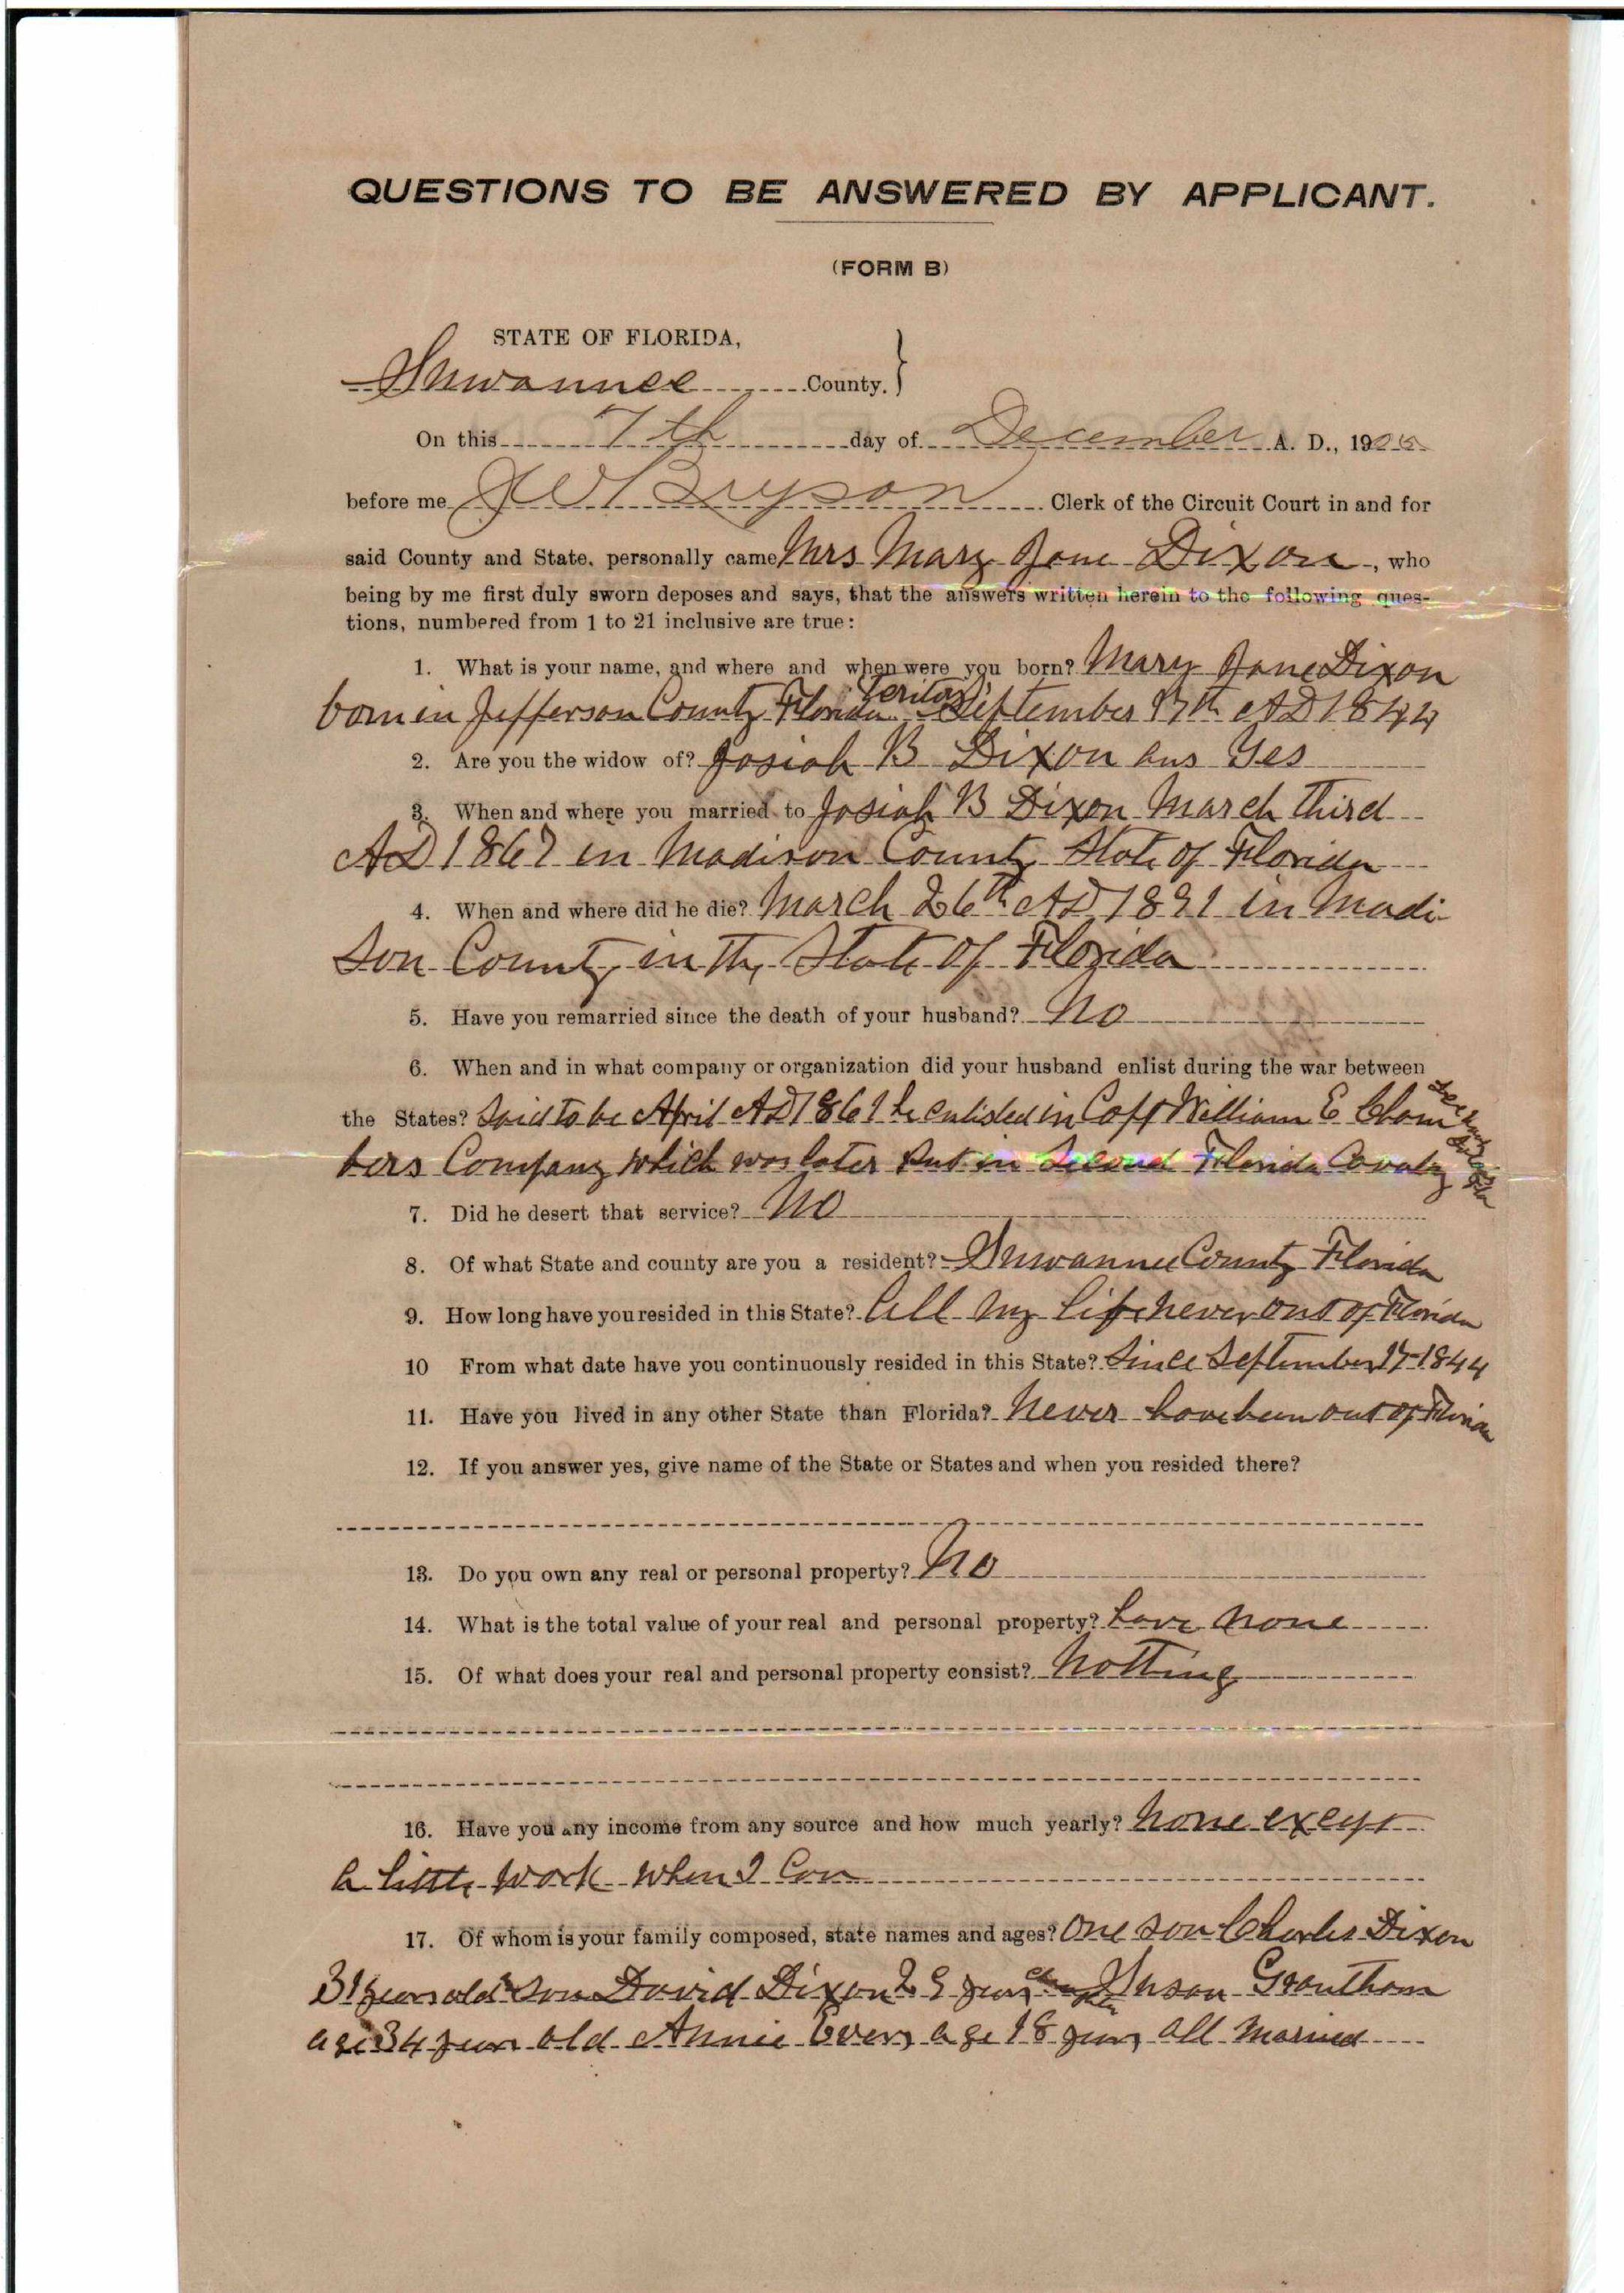 QUESTIONS TO BE ANSWERED BY APPLICANT.
(FORM B)
STATE OF FLORIDA,
Suwannee County. }
On this 7th day of December A. D., 190
before me J W Bryson Clerk of the Circuit Court in and for
said County and State, personally came Mrs Mary Jane Dixon, who
being by me first duly sworn deposes and says, that the answers written herein to the following ques-
tions, numbered from 1 to 21 inclusive are true:
1. What is your name, and where and when were you born? Mary Jane Dixon
born in Jefferson County Florida Teritory September 17th AD 1844
2. Are you the widow of? Josiah B Dixon ans Yes
3. When and where you married to Josiah B Dixon March third
AD 1867 in Madison County State of Florida
4. When and where did he die? March 26th AD 1891 in Madi
son County in the State of Florida
5. Have you remarried since the death of your husband? No
6. When and in what company or organization did your husband enlist during the war between
the States? Said to be April AD 1861 he enlisted in Capt William E Cham
bers Company which was later put in Second Florida Cavalry
7. Did he desert that service? No
8. Of what State and county are you a resident? Suwannee County Florida
9. How long have you resided in this State? All my life never out of Florida
10 From what date have you continuously resided in this State? Since September 17-1844
11. Have you lived in any other State than Florida? Never have been out of Florida
12. If you answer yes, give name of the State or States and when you resided there?
13. Do you own any real or personal property? No
14. What is the total value of your real and personal property? have none
15. Of what does your real and personal property consist? Nothing
16. Have you any income from any source and how much yearly? None exept
a little work when I can
17. Of whom is your family composed, state names and ages? One son Charles Dixon
31 years old son David Dixon 29 years Susan Grantham
age 34 years old Annie age 18 years all married